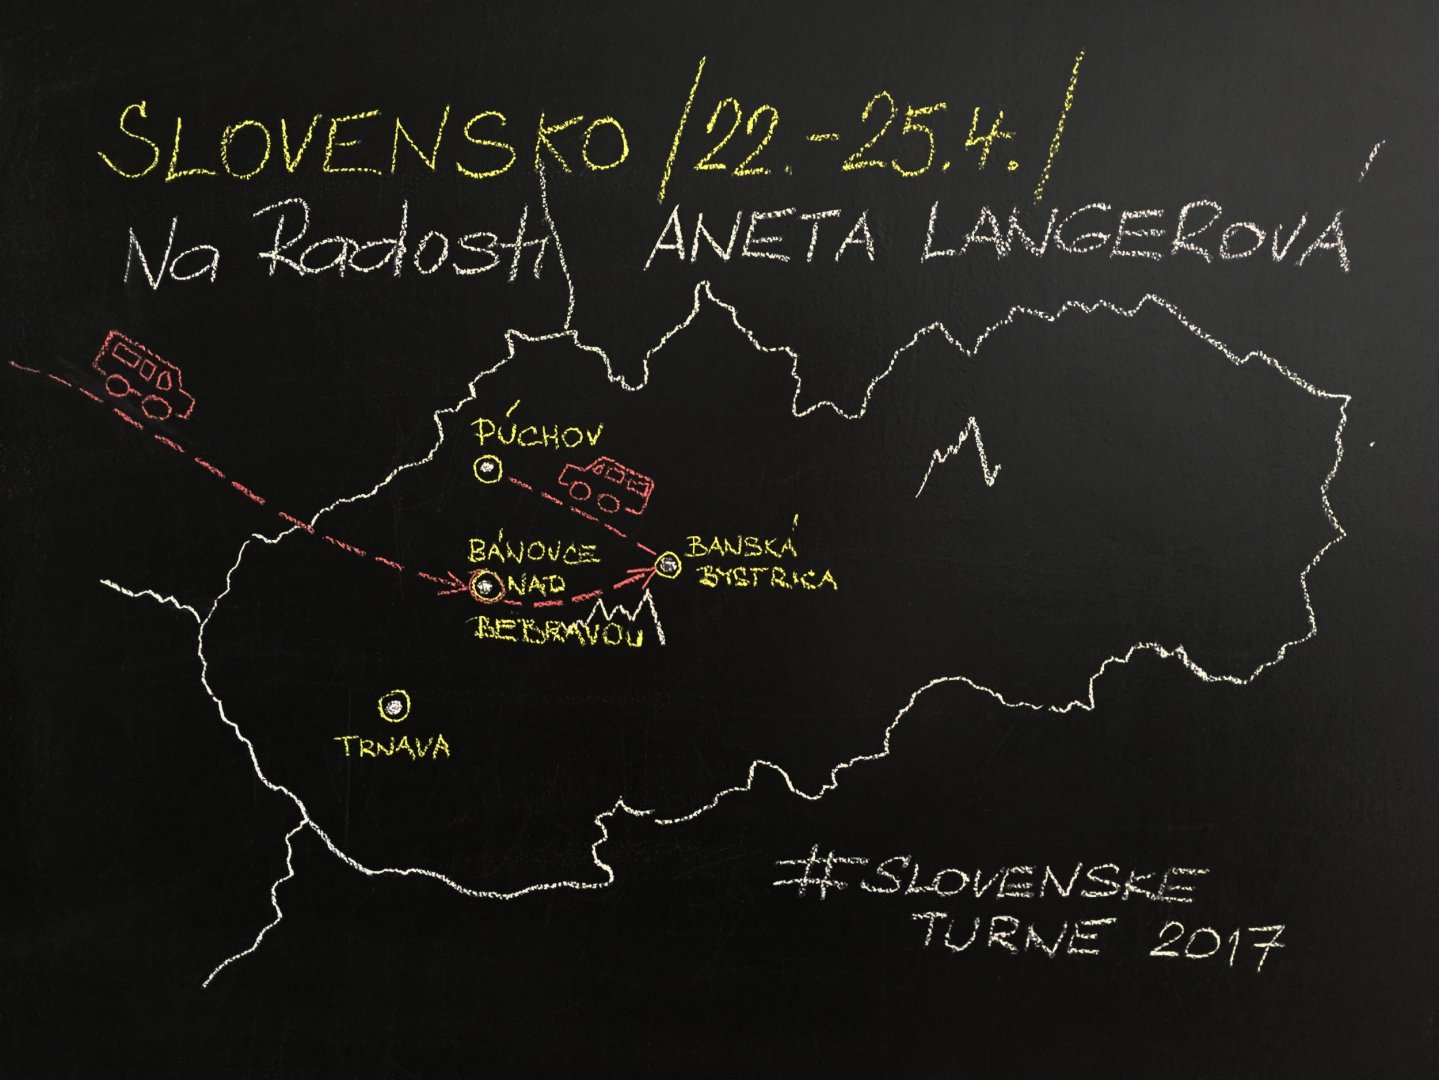 SLOVENSKO /22.-25.4./
Na Radosti ANETA LANGEROVÁ
PÚCHOV
BÁNOVCE
NAD
BEBRAVOU
BANSKÁ
BYSTRICA
TRNAVA
#SLOVENSKE
TURNE 2017